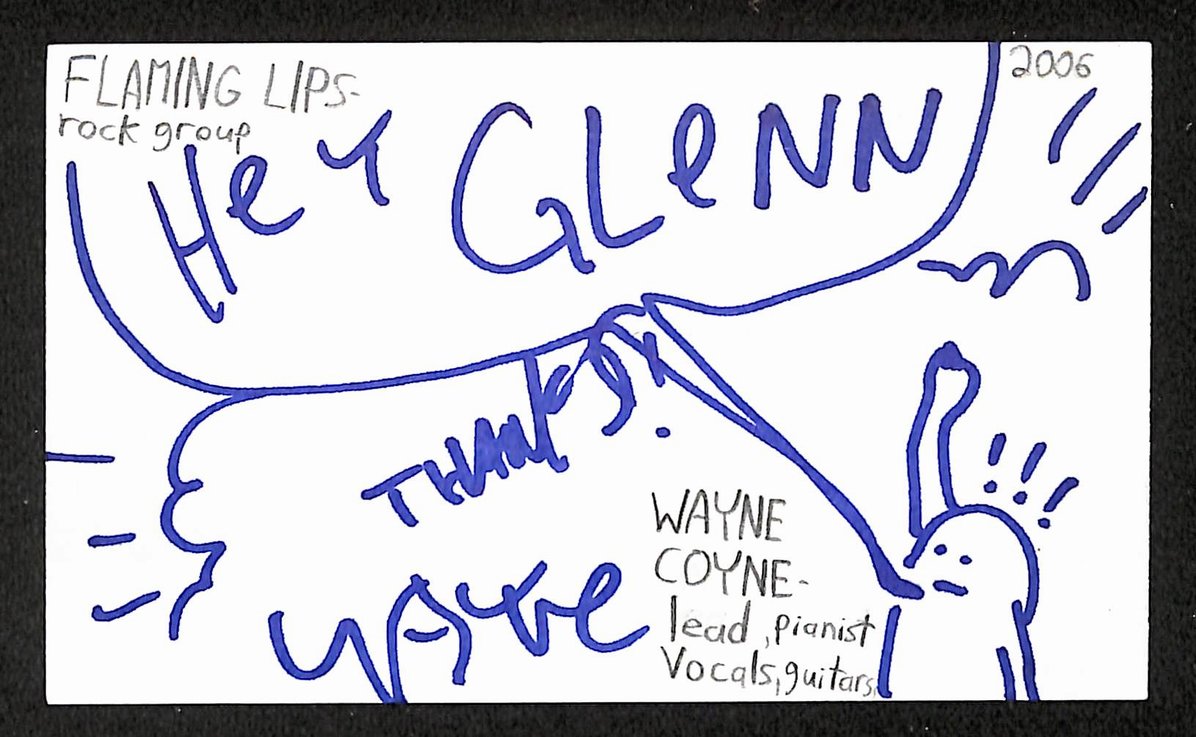 FLAMING LIPS-
rock group
2006
HeY GLeNN
THANKS
!!!
WAYNE
COYNE-
lead, pianist
Vocals, guitars,
WAYNe